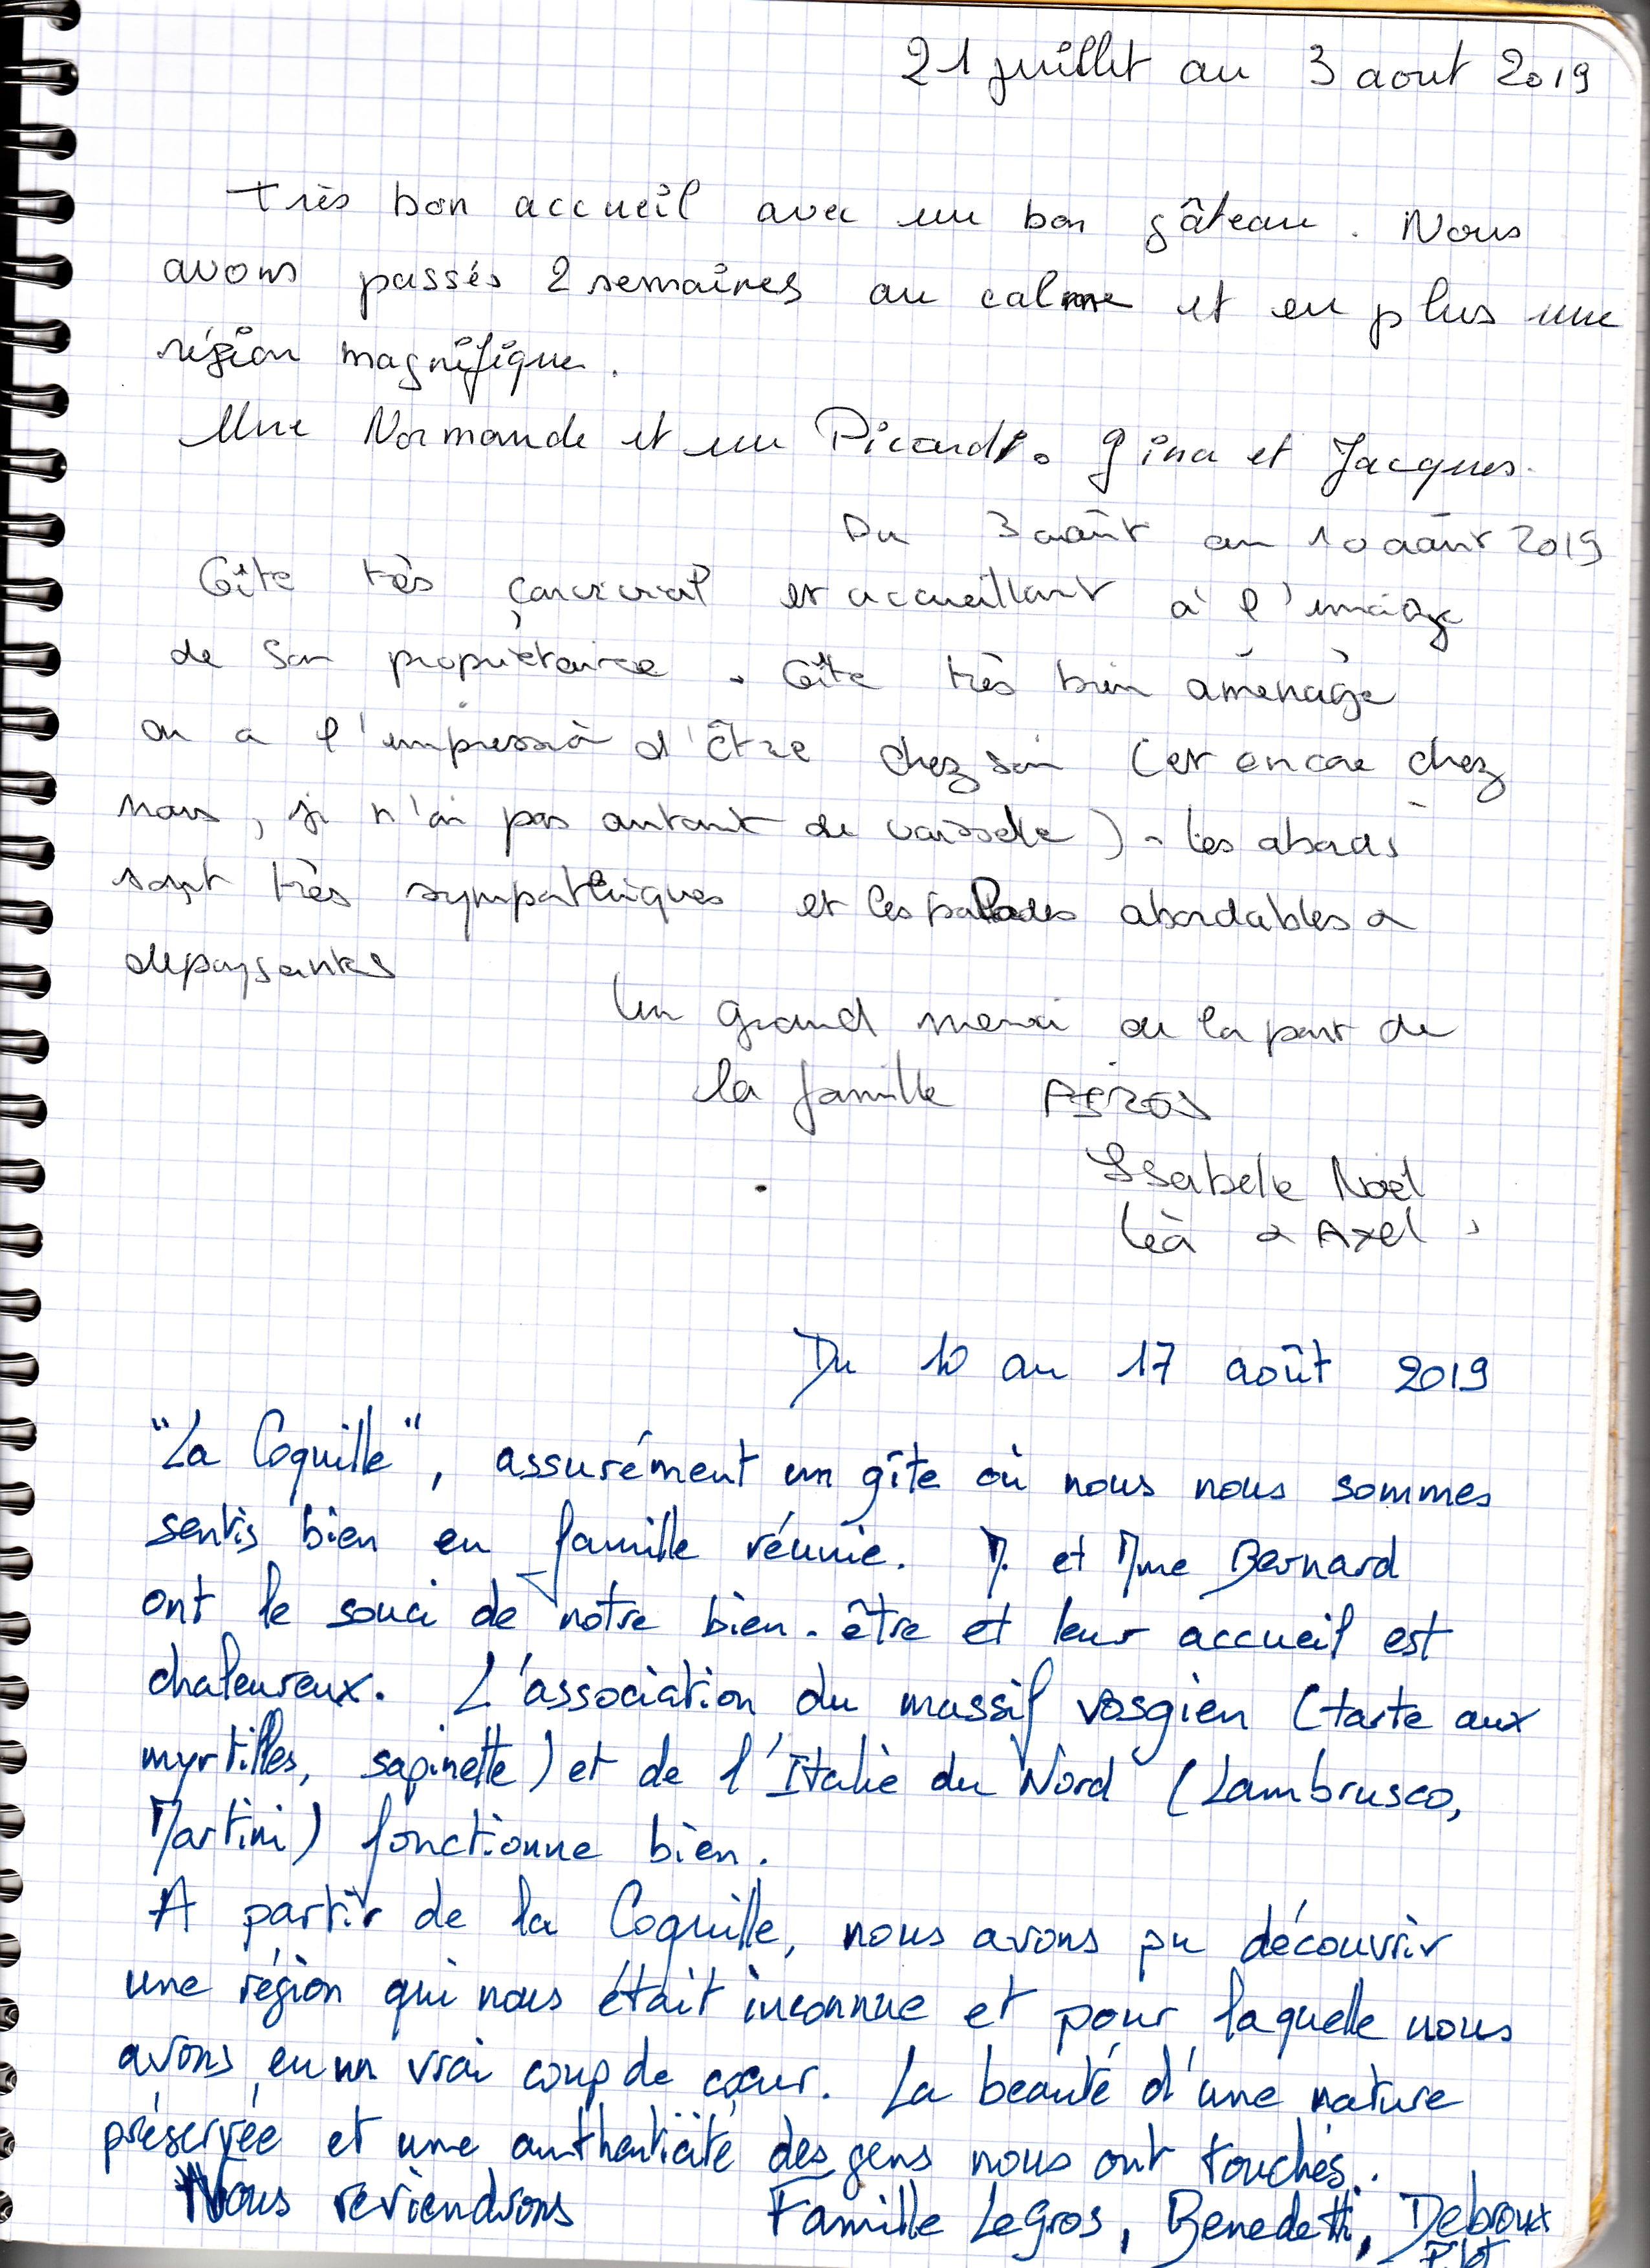 21 juillet au 3 aout 2019
très bon accueil avec un bon gâteau. Nous
avons passés 2 semaines au calme et en plus une
région magnifique.
Une Normande et un Picard. Gina et Jacques.
Du 3 août au 10 août 2019
Gîte très convivial et accueillant à l'image
de son propriétaire. Gîte très bien aménagé
on a l'impression d'être chez soi (et encore chez
nous, je n'ai pas autant de vaisselle). Les abords
sont très sympathiques et les balades abordables &
depaysantes
Un grand merci de la part de
la famille
Isabelle Noël
Léa & Axel
Du 10 au 17 août 2019
"La Coquille", assurément un gîte où nous nous sommes
sentis bien en famille réunie. M. et Mme Bernard
ont le souci de notre bien-être et leur accueil est
chaleureux. L'association du massif vosgien (tarte aux
myrtilles, sapinette) et de l'Italie du Nord (Lambrusco,
Martini) fonctionne bien.
A partir de la Coquille, nous avons pu découvrir
une région qui nous était inconnue et pour laquelle nous
avons eu un vrai coup de cœur. La beauté d'une nature
préservée et une authenticité des gens nous ont touchés.
Nous reviendrons Famille Legros, Benedetti, Debroux